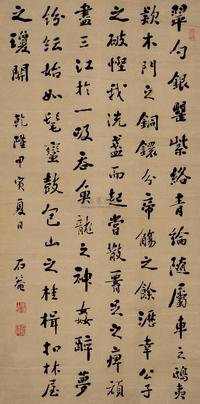 翠勺銀罌紫絡青綸隨屬車之鴟夷
欵木門之銅鐶分帝觴之餘瀝幸公子
之破慳我洗盞而起嘗散腰足之痹頑
盡三江於一吸吞魚龍之神姦醉夢
紛紜始如髦蠻鼓包山之桂楫扣林屋
之瓊關 乾隆甲寅夏日 石菴